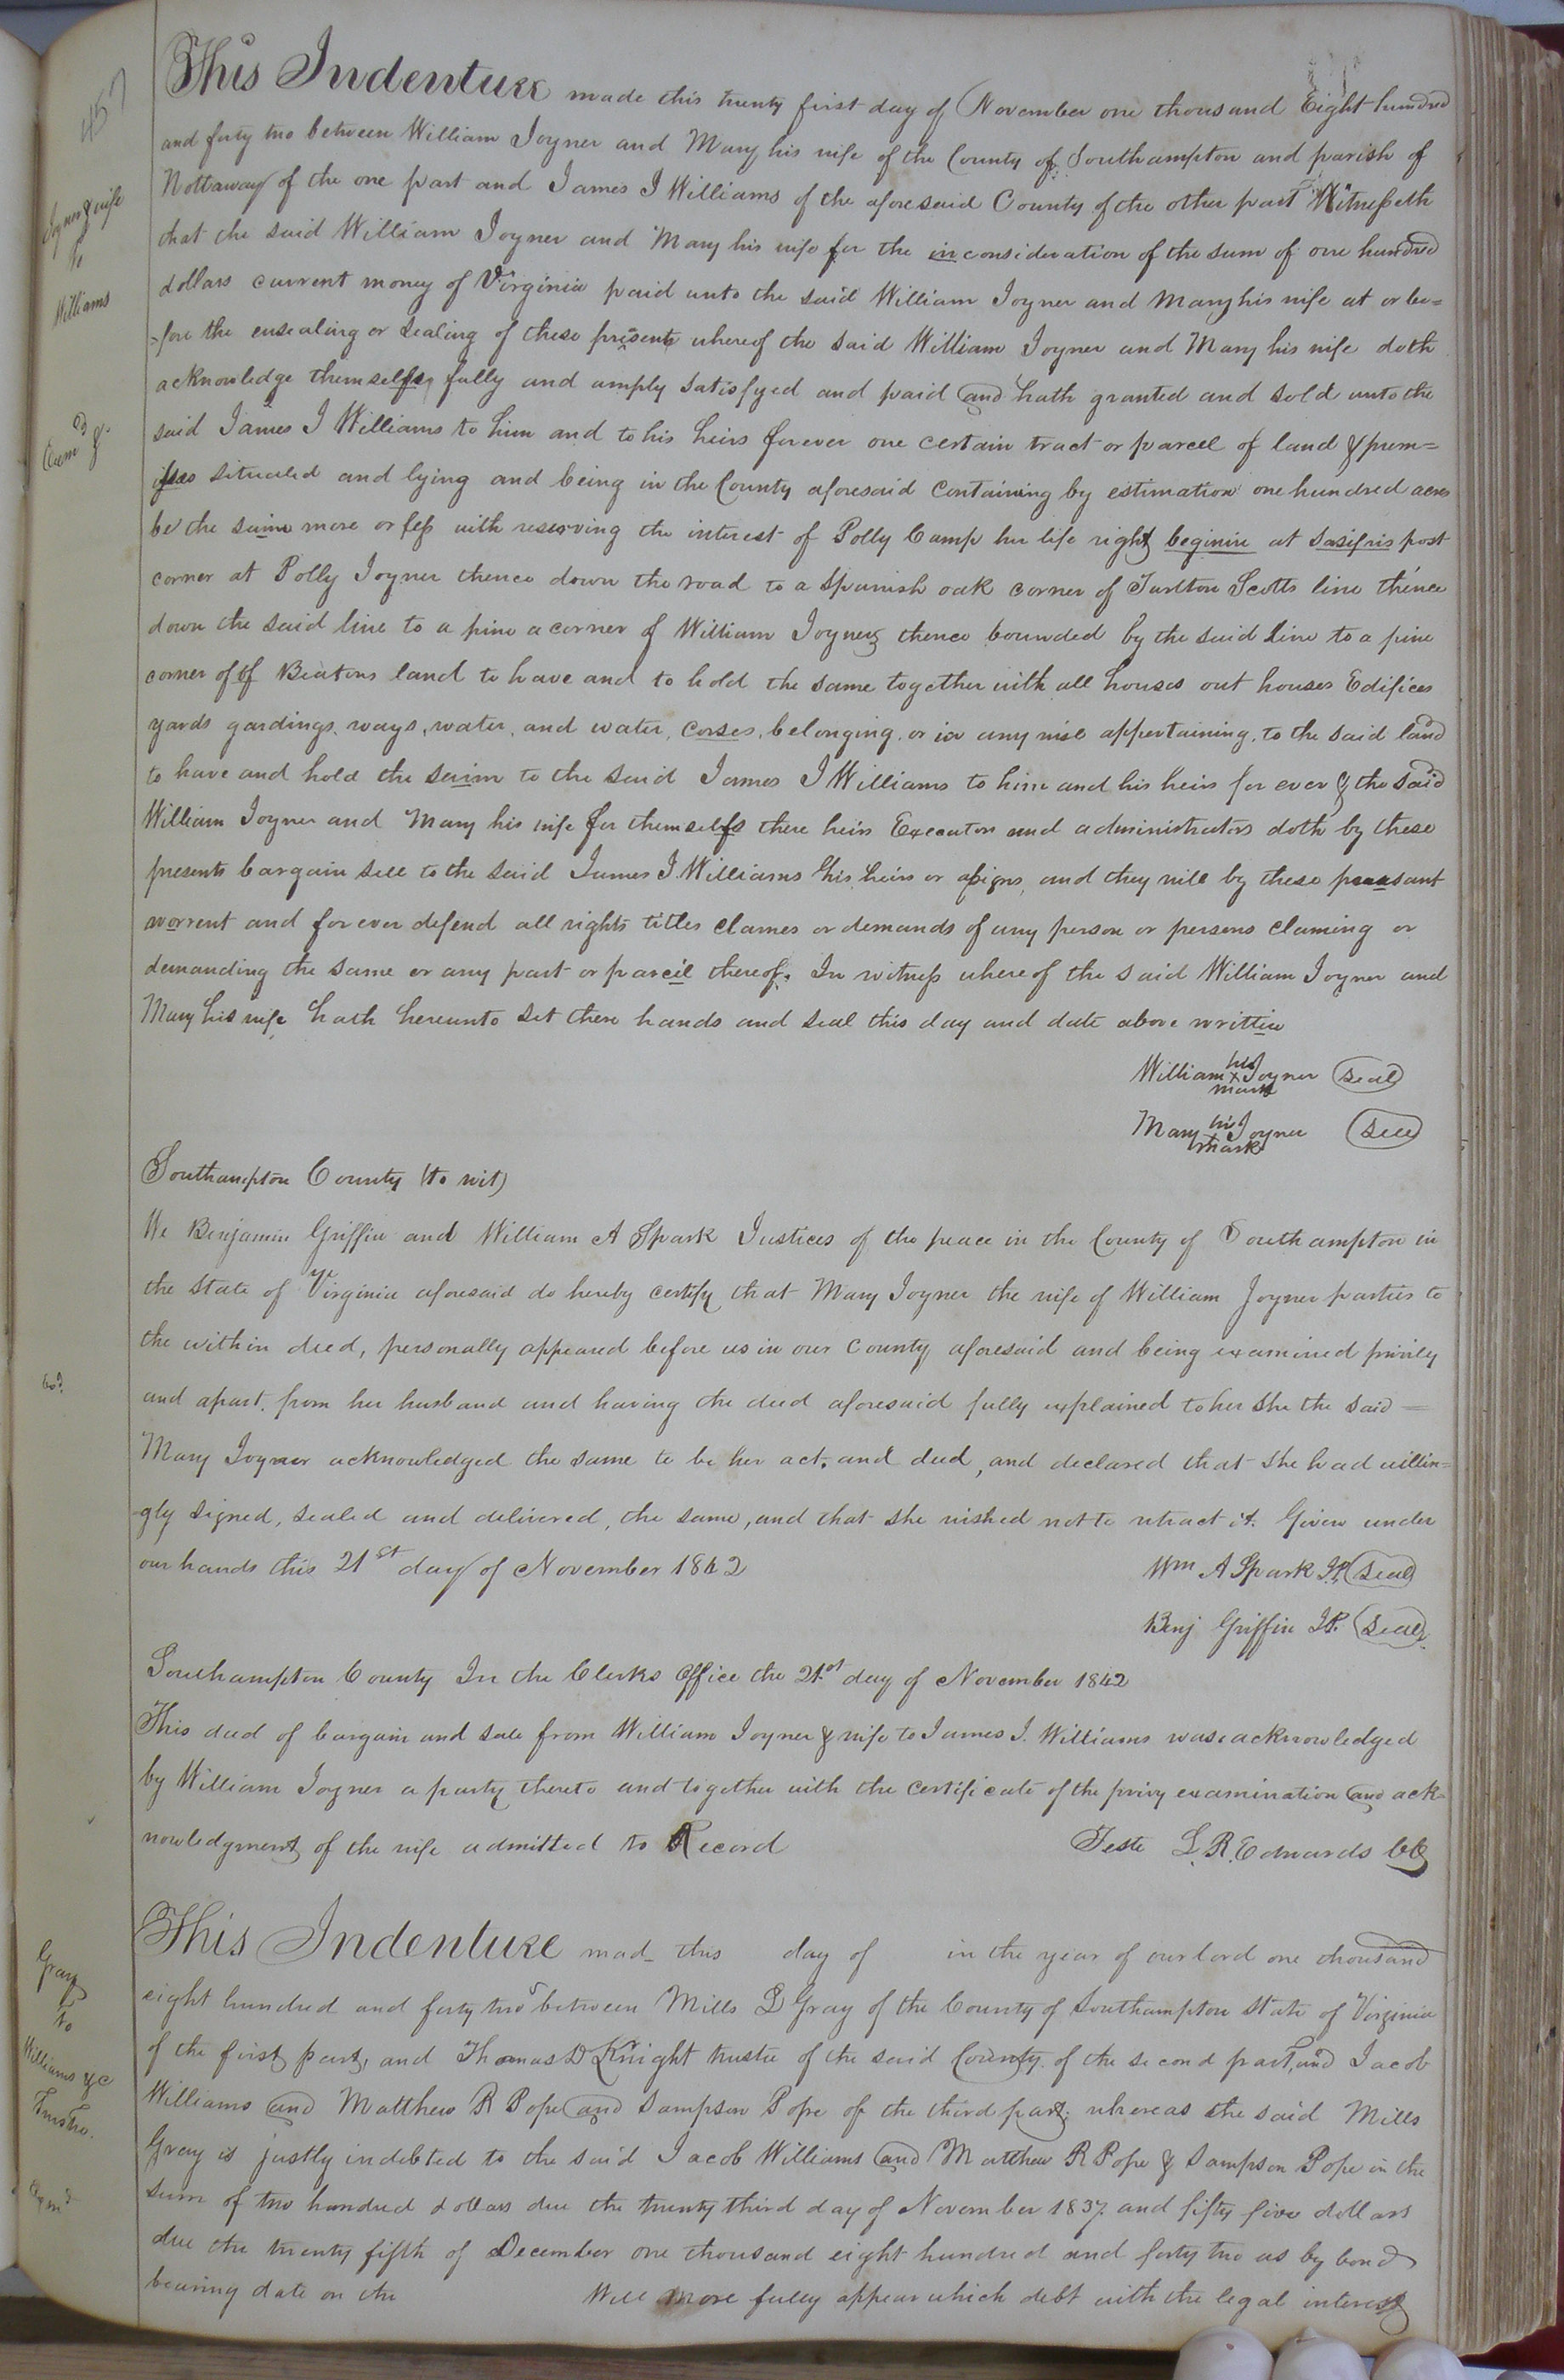 457
Joyner & wife
to
Williams
Exam d &
This Indenture made this twenty first day of November one thousand Eight hundred
and forty two between William Joyner and Mary his wife of the County of Southampton and parish of
Nottaway of the one part and James J Williams of the aforesaid County of the other part Witnesseth
that the said William Joyner and Mary his wife for the in consideration of the sum of one hundred
dollars current money of Virginia paid unto the said William Joyner and Mary his wife at or be=
=fore the ensealing or sealing of these presents whereof the said William Joyner and Mary his wife doth
acknowledge themselfs fully and amply satisfyed and paid and hath granted and sold unto the
said James J Williams to him and to his heirs forever one certain tract or parcel of land & prem=
isses situated and lying and being in the County aforesaid containing by estimation one hundred acres
be the saim more or less with reserving the interest of Polly Camp her life right beginin at sasifris post
corner at Polly Joyner thence down the road to a Spanish oak corner of Turlton Scotts line thence
down the said line to a pine a corner of William Joyners thence bounded by the said line to a pine
corner of of Beatons land to have and to hold the same together with all houses out houses Edifices
yards gardings, ways, water, and water, corses, belonging, or in any wise appertaining, to the said land
to have and hold the saim to the said James J Williams to him and his heirs for ever & the said
William Joyner and Mary his wife for themselfs there heirs Executors and administrators doth by these
presents bargain sell to the said James J. Williams his heirs or assigns, and they will by these preasant
worrent and forever defend all rights titles clames or demands of any person or persons claming or
demanding the same or any part or parcil thereof. In witness whereof the said William Joyner and
Mary his wife hath hereunto set there hands and seal this day and date above writtin
William his X mark Joyner seal
Mary his + mark Joyner seal
Southampton County (to wit)
We Benjamin Griffin and William A Spark Justices of the peace in the County of Southampton in
the state of Virginia aforesaid do hereby certify that Mary Joyner the wife of William Joyner parties to
the within deed, personally appeared before us in our County aforesaid and being examined privily
and apart, from her husband and having the deed aforesaid fully explained to her she the said =
Mary Joyner acknowledged the same to be her act, and deed, and declared that she had willin=
=gly signed, sealed and delivered, the same, and that she wished not to retract it. Given under
our hands this 21st day of November 1842
Wm A Spark J.P. seal
Benj Griffin J.P. seal
Southampton County In the Clerks Office the 21st day of November 1842
This deed of bargain and sale from William Joyner & wife to James J. Williams was acknowledged
by William Joyner a party thereto and together with the certificate of the privy examination and ack=
nowledgment of the wife admitted to Record
Teste L. R. Edwards CC
Gray
to
Williams &c
Trustee.
Exam d
This Indenture mad this day of in the year of our lord one thousand
eight hundred and forty two between Mills D Gray of the County of Southampton state of Virginia
of the first part, and Thomas D Knight trustee of the said County of the second part, and Jacob
Williams and Matthew R Pope and Sampson Pope of the third part: whereas the said Mills
Gray is justly indebted to the said Jacob Williams and Matthew R Pope & Sampson Pope in the
sum of two hundred dollars due the twenty third day of November 1837. and fifty five dollars
due the twenty fifth of December one thousand eight hundred and forty two as by bond
bearing date on the Will more fully appear which debt with the legal interest